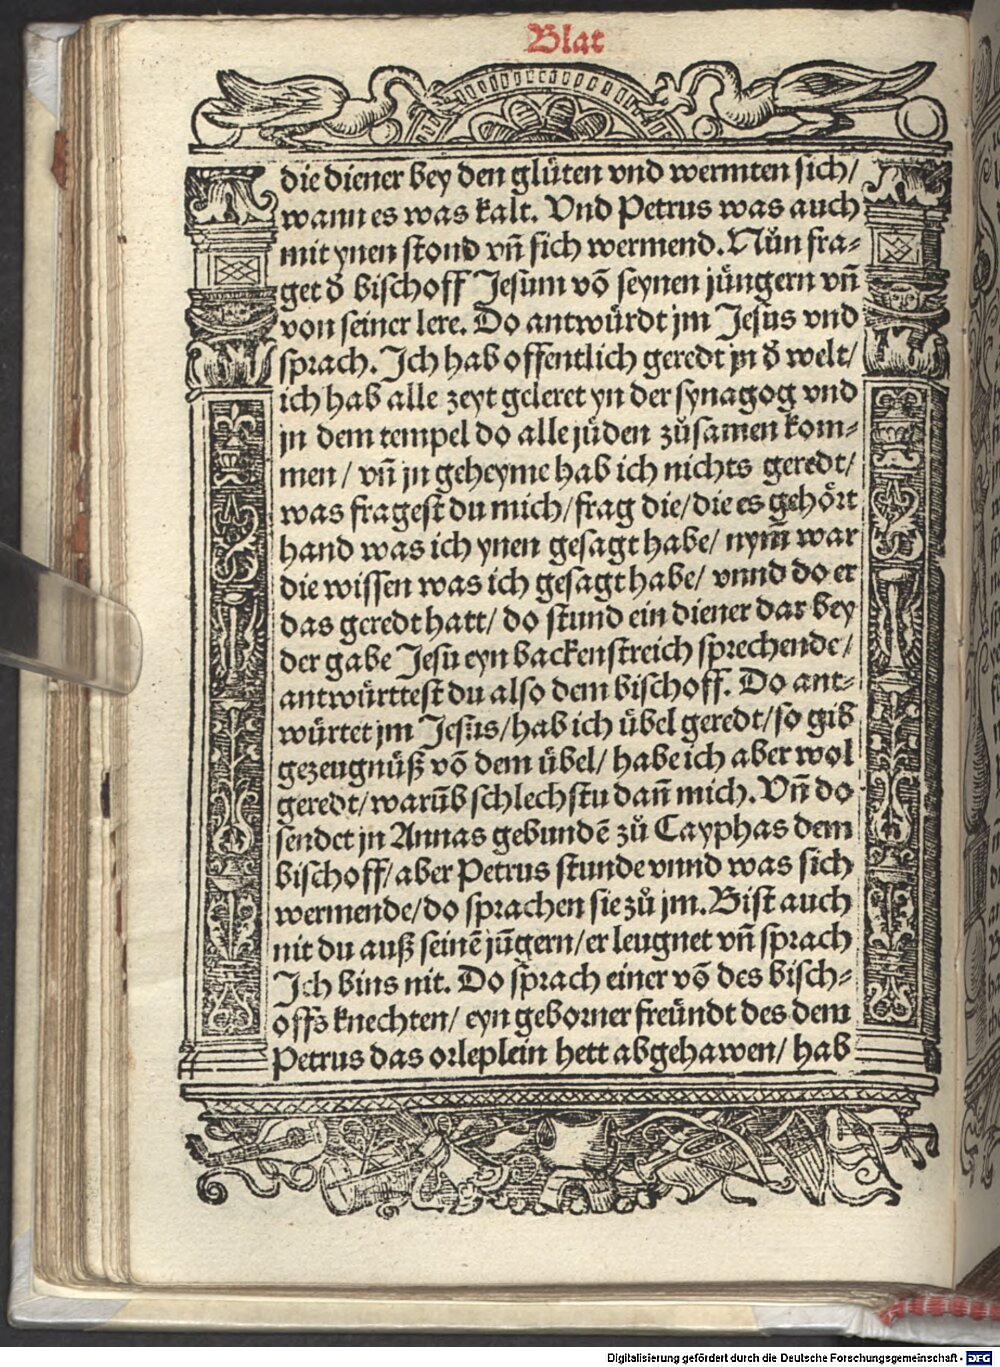 Blat
die diener bey den glüten vnd wermten sich/
wann es was kalt. Vnd Petrus was auch
mit ynen stond vñ sich wermend. Nůn fra⸗
get d̕ bischoff Jesum võ seynen jüngern vñ
von seiner lere. Do antwürdt jm Jesus vnd
sprach. Ich hab offentlich geredt jn d̕ welt/
ich hab alle zeyt geleret yn der synagog vnd
jn dem tempel do alle jüden zůsamen kom⸗
men / vñ jn geheyme hab ich nichts geredt/
was fragest du mich/ frag die/ die es gehört
hand was ich ynen gesagt habe/ nym̃ war
die wissen was ich gesagt habe/ vnnd do er
das geredt hatt/ do stund ein diener dar bey
der gabe Jesu eyn backenstreich sprechende/
antwürttest du also dem bischoff. Do ant⸗
würtet jm Jesus/ hab ich übel geredt/ so gib
gezeugnüß võ dem übel/ habe ich aber wol
geredt/ warũb schlechstu dañ mich. Vñ do
sendet jn Annas gebundẽ zů Cayphas dem
bischoff/ aber Petrus stunde vnnd was sich
wermende/ do sprachen sie zů jm. Bist auch
nit du auß seinẽ jüngern/ er leugnet vñ sprach
Ich bins nit. Do sprach einer võ des bisch⸗
offs knechten/ eyn geborner freündt des dem
Petrus das orleplein hett abgehawen/ hab
Digitalisierung gefördert durch die Deutsche Forschungsgemeinschaft - DFG